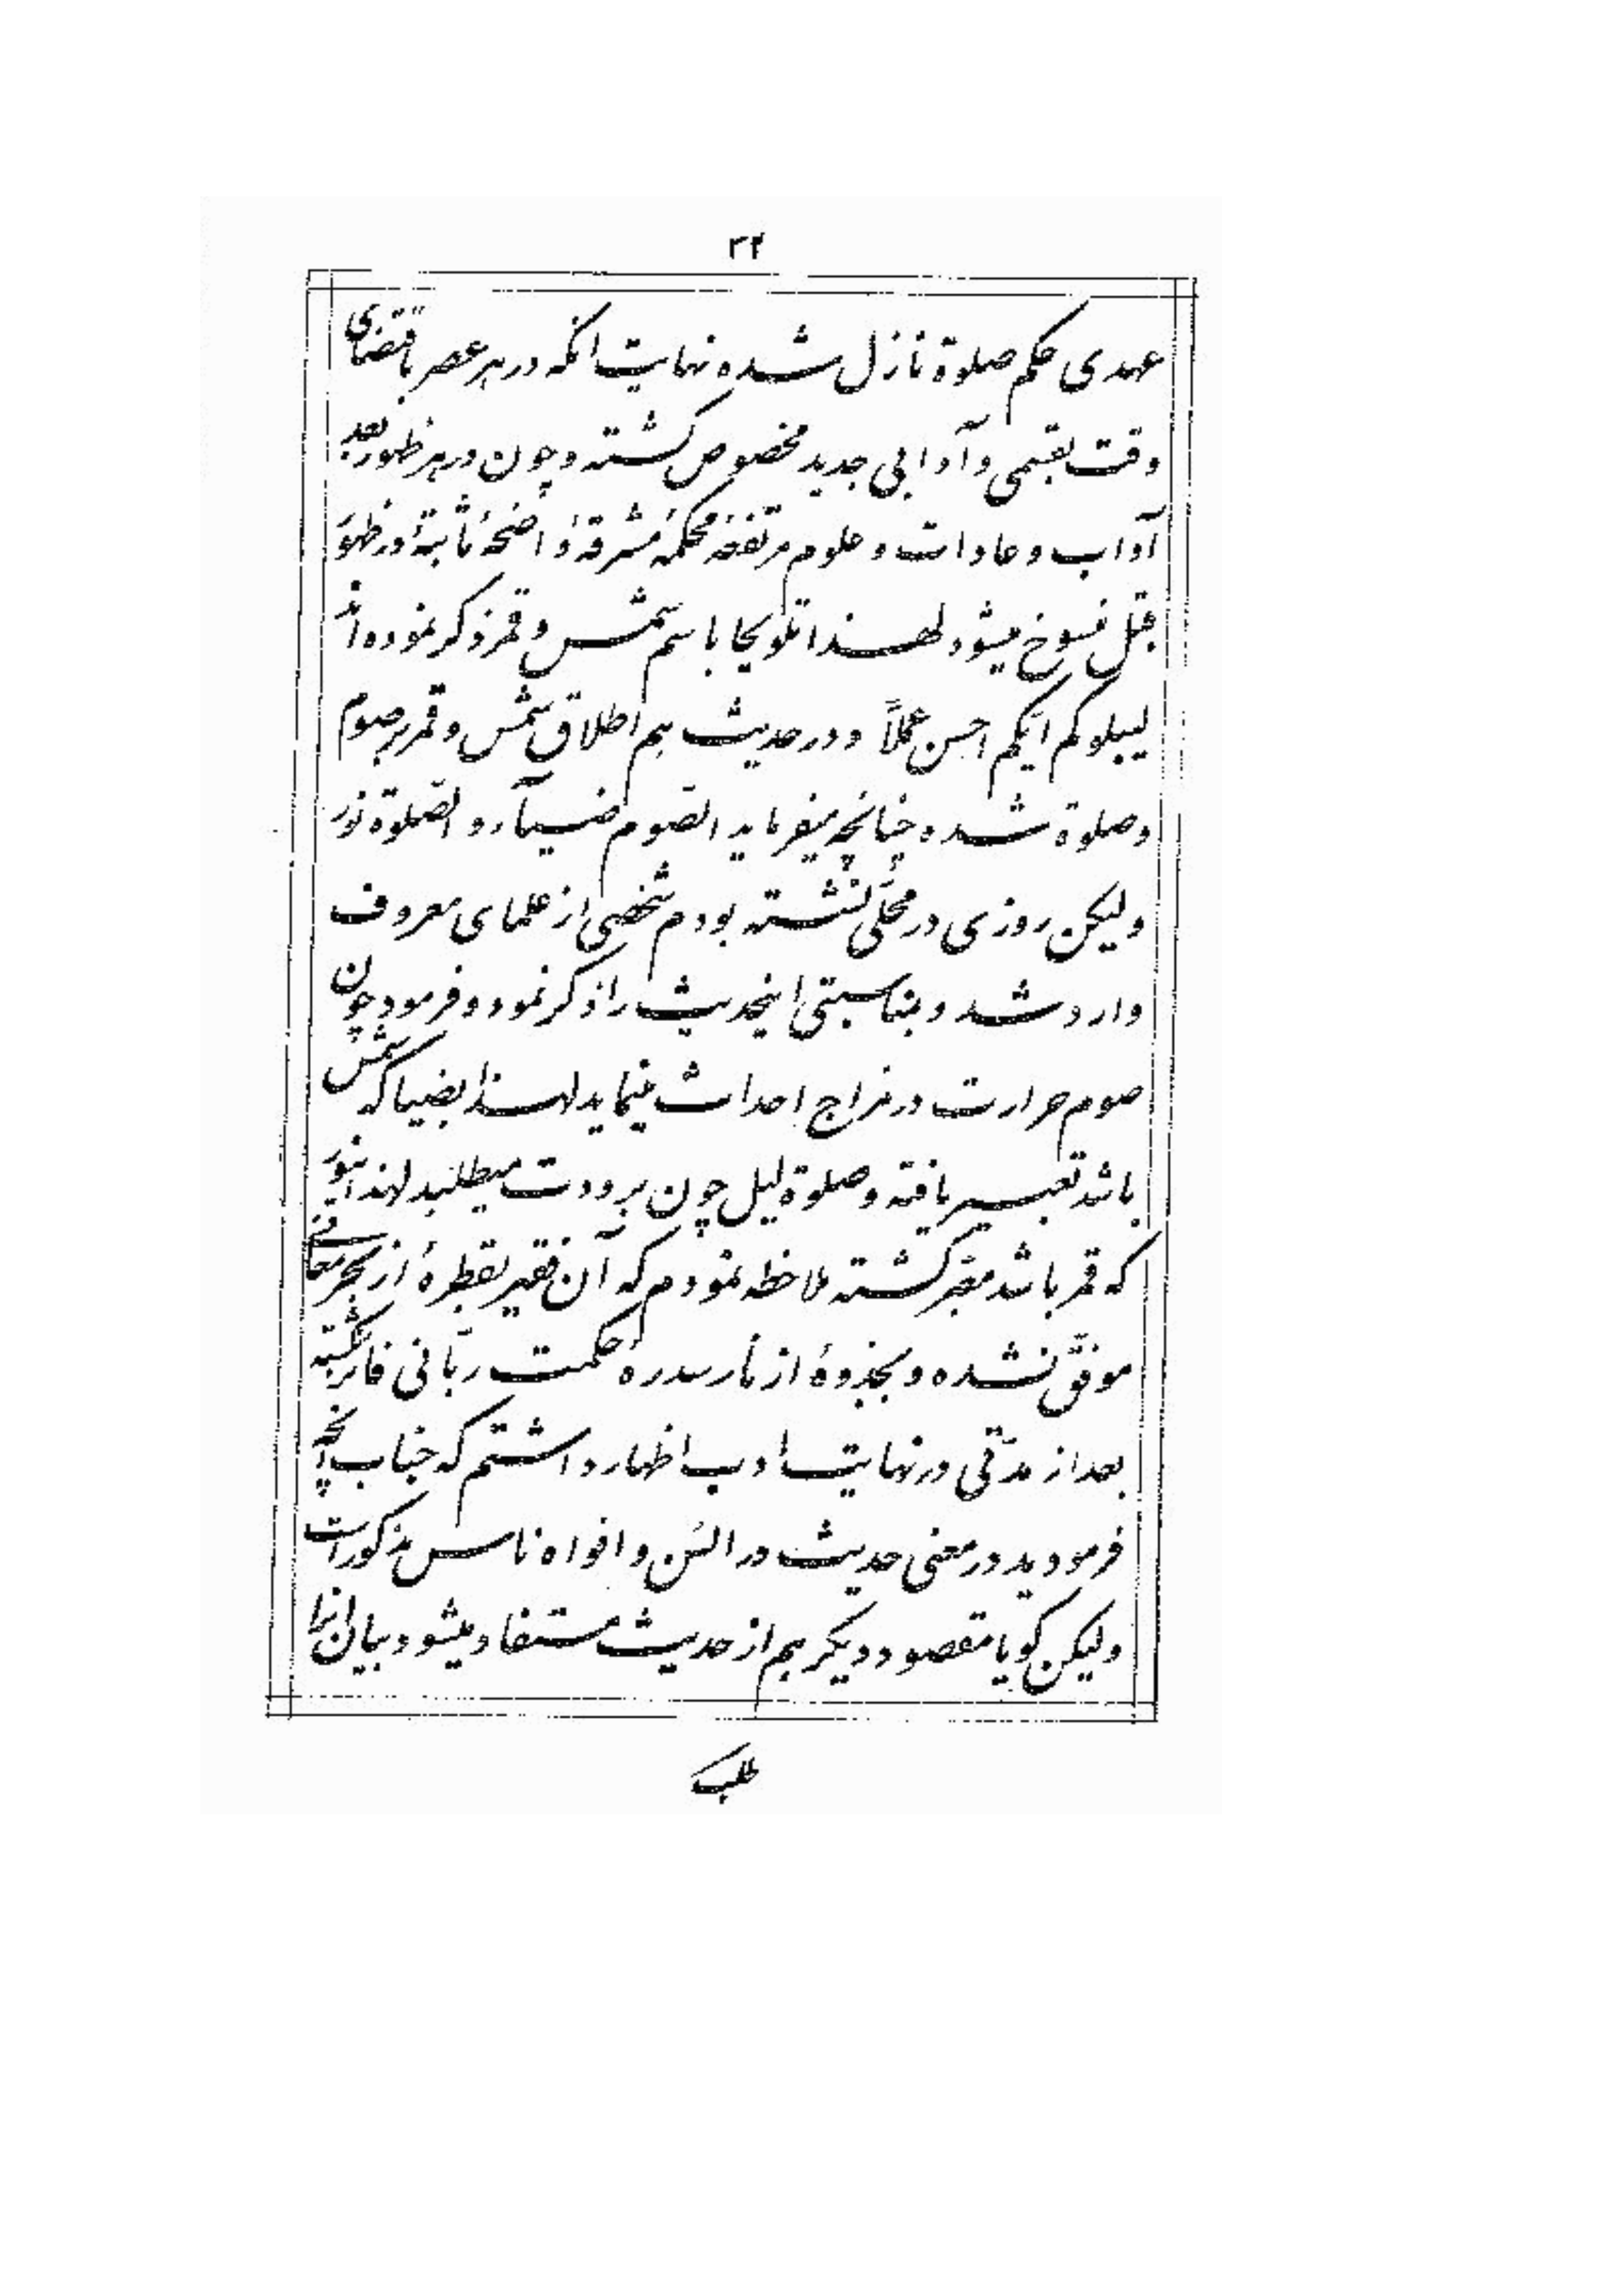 ۳۲
عهدی حکم صلوة نازل شده نهایت انکه در هر عصر باقتضای
وقت بقسمی و آدابی جدید مخصوص کشته و چون در هر ظهور بعد
آداب و عادات و علوم مرتفعهٔ محکمهٔ مشرقهٔ واضحهٔ ثابتهٔ در ظهور
قبل منسوخ میشود لهذا تلویحا باسم شمس و قمر ذکر نموده‌اند
لیبلوکم ایّکم احسن عملاً و در حدیث هم اطلاق شمس و قمر بر صوم
و صلوة شده چنانچه میفرماید الصّوم ضیآء و الصّلوة نور
ولیکن روزی در محلّی نشسته بودم شخصی از علمای معروف
وارد شد و بمناسبتی اینحدیث را ذکر نمود و فرمود چون
صوم حرارت در مزاج احداث مینماید لهذا بضیا که شمس
باشد تعبیر یافته و صلوة لیل چون برودت میطلبد لهذا بنور
که قمر باشد معبّر کشته ملاحظه نمودم که آن فقیر بقطرهٔ از بحر معانی
موفّق نشده و بجذوهٔ از نار سدرهٔ حکمت ربّانی فائز نگشته
بعد از مدّتی در نهایت ادب اظهار داشتم که جناب آنچه
فرمودید در معنی حدیث در السن و افواه ناس مذکور است
ولیکن کویا مقصود دیکر هم از حدیث مستفاد میشود بیان انرا
طلب